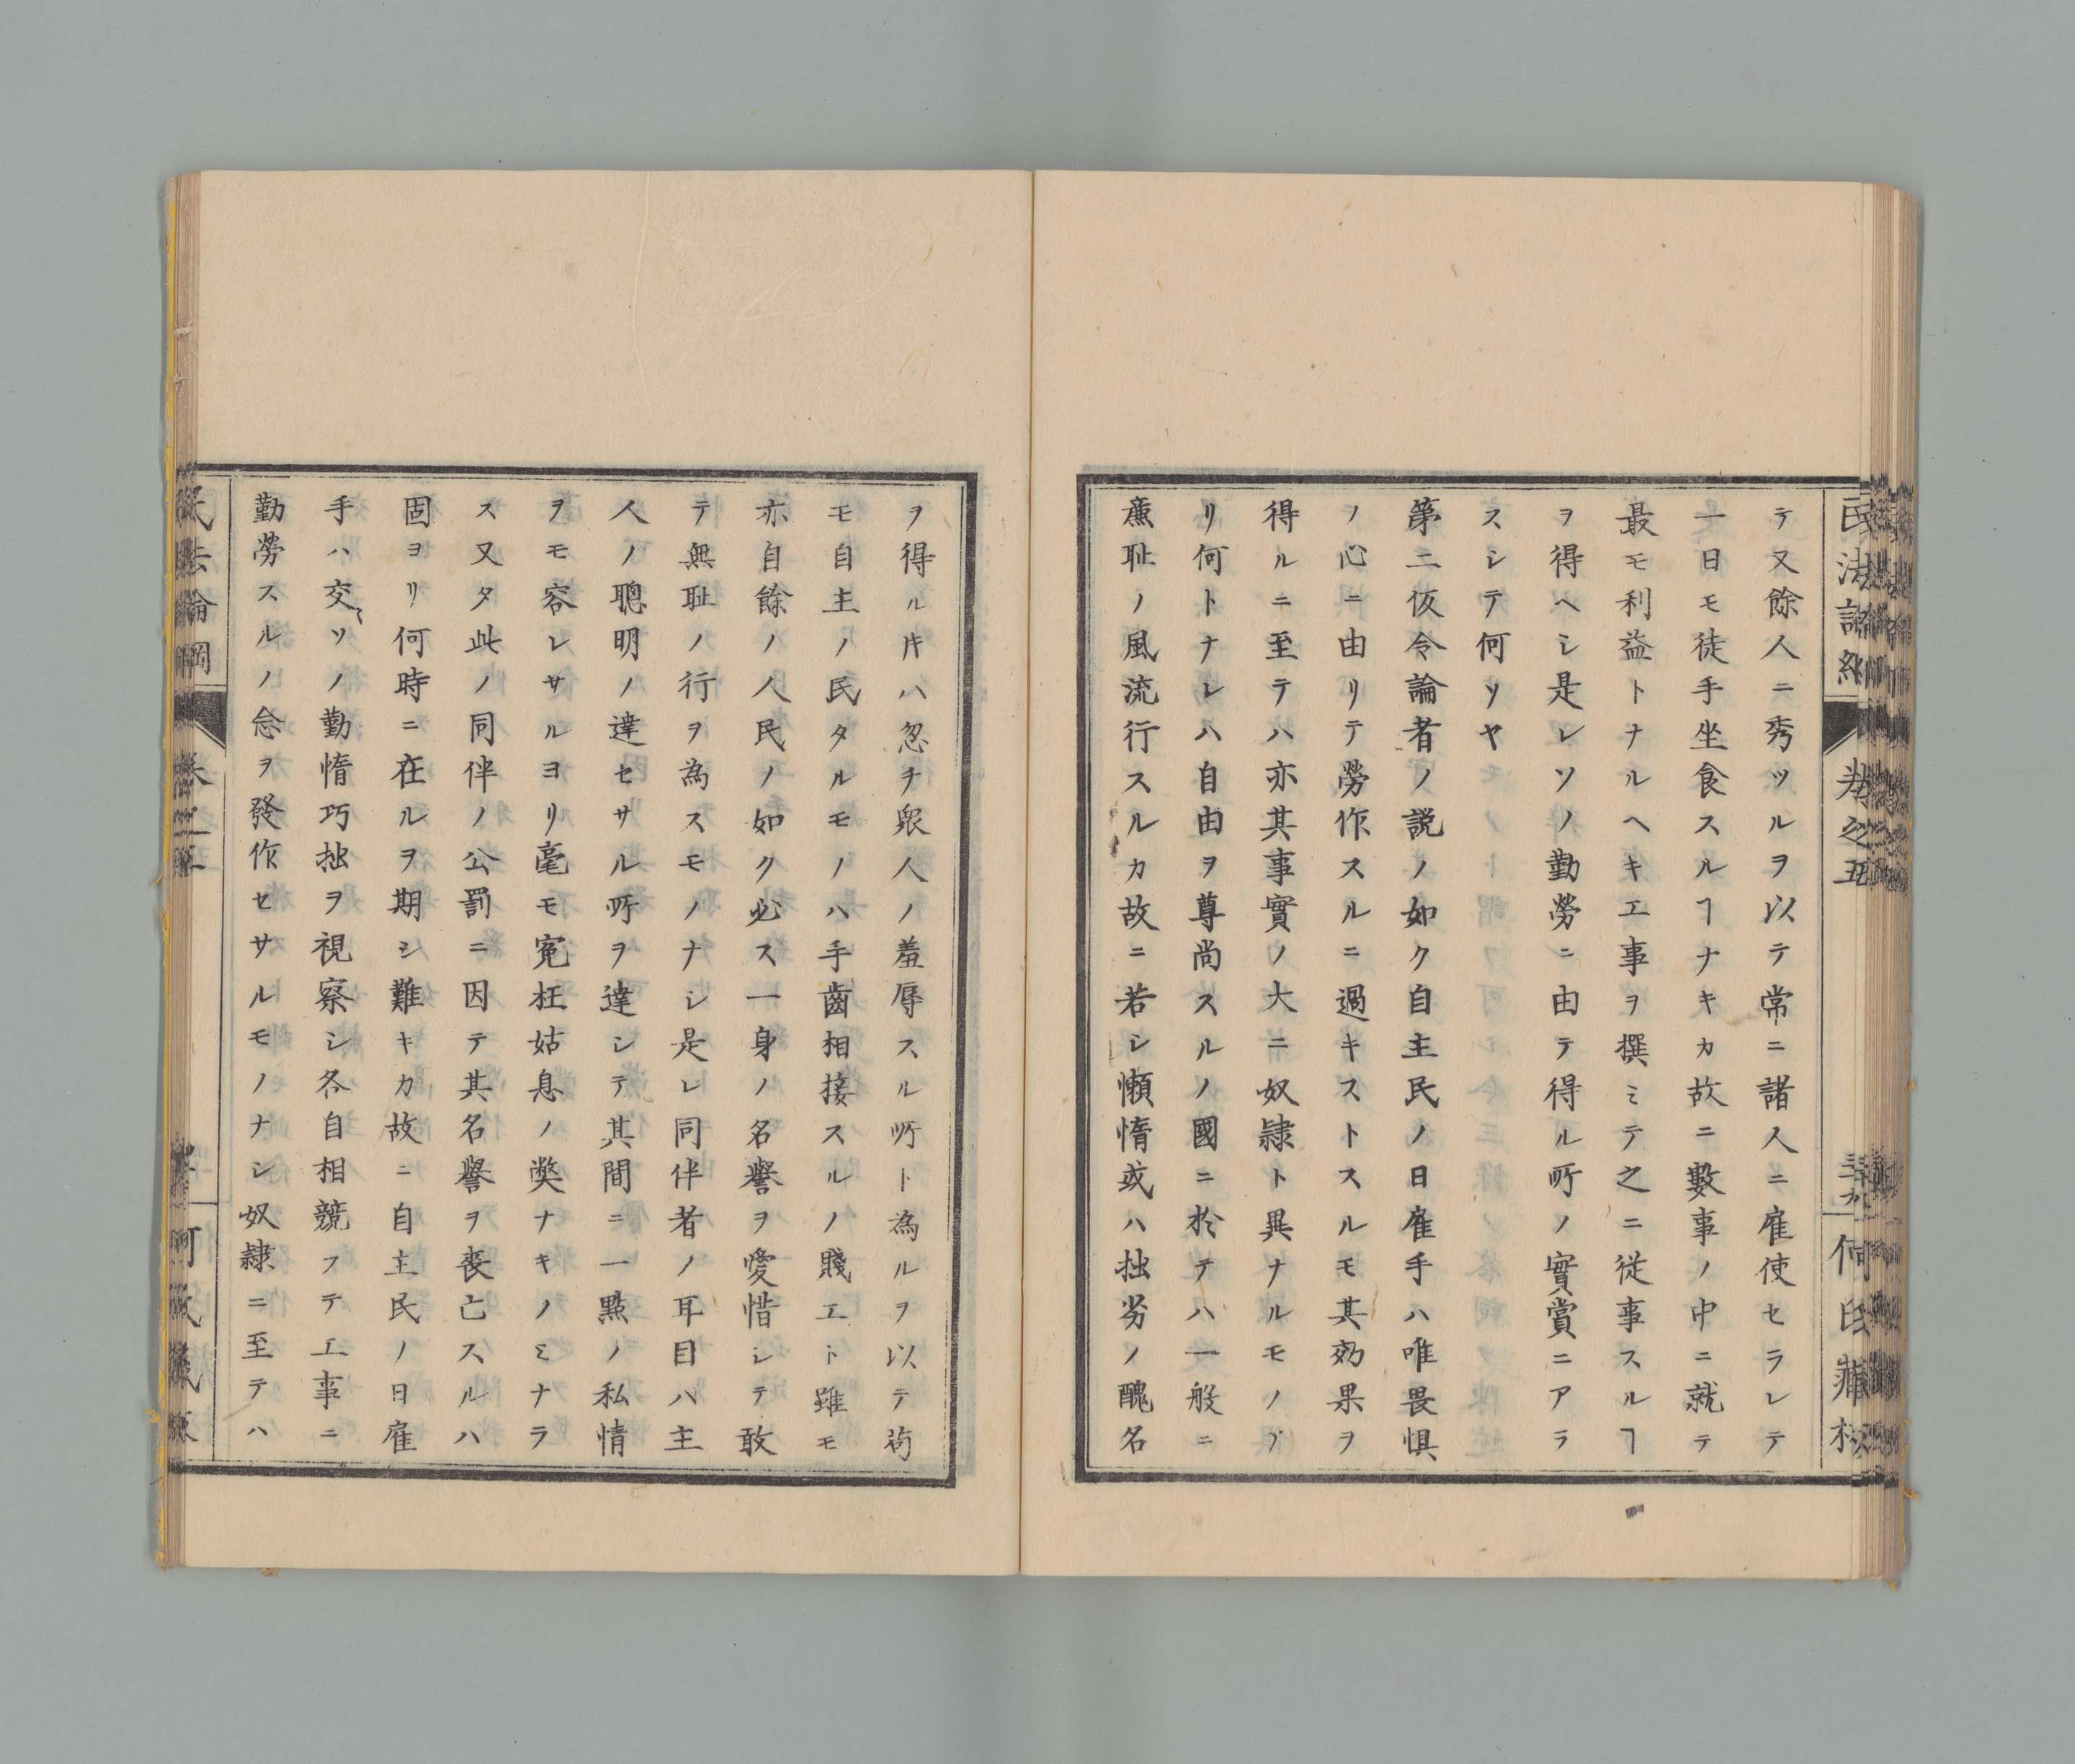 民法論綱
卷之五
テ又餘人ニ秀ツルヲ以テ常ニ諸人ニ雇使セラレテ
一日モ徒手坐食スルヿナキカ故ニ數事ノ中ニ就テ
最モ利益トナルヘキ工事ヲ撰ミテ之ニ従事スルヿ
ヲ得ヘシ是レソノ勤勞ニ由テ得ル所ノ實賞ニアラ
スシテ何ソヤ
第二仮令論者ノ説ノ如ク自主民ノ日雇手ハ唯畏惧
ノ心ニ由リテ勞作スルニ過キストスルモ其効果ヲ
得ルニ至テハ亦其事實ノ大ニ奴隷ト異ナルモノア
リ何トナレハ自由ヲ尊尚スルノ國ニ於テハ一般ニ
廉耻ノ風流行スルカ故ニ若シ懶惰或ハ拙劣ノ醜名
ヲ得ル片ハ忽チ衆人ノ羞辱スル所ト為ルヲ以テ苟
モ自主ノ民タルモノハ手齒相接スルノ賤工ト雖モ
亦自餘ノ人民ノ如ク必ス一身ノ名譽ヲ愛惜シテ敢
テ無耻ノ行ヲ為スモノナシ是レ同伴者ノ耳目ハ主
人ノ聰明ノ達セサル所ヲ達シテ其間ニ一點ノ私情
ヲモ容レサルヨリ毫モ寃枉姑息ノ弊ナキノミナラ
ス又タ此ノ同伴ノ公罰ニ因テ其名譽ヲ喪亡スルハ
固ヨリ何時ニ在ルヲ期シ難キカ故ニ自主民ノ日雇
手ハ交〻ソノ勤惰巧拙ヲ視察シ各自相競フテ工事ニ
勤勞スルノ念ヲ發作セサルモノナシ奴隷ニ至テハ
民法論綱
卷之五